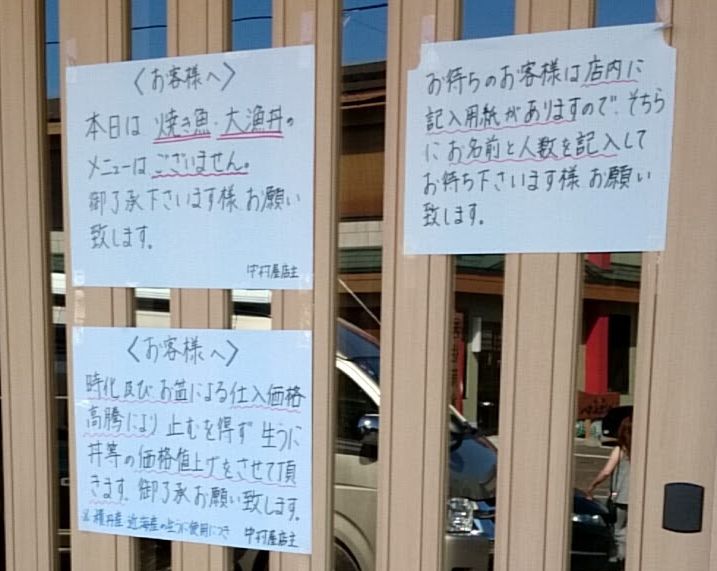 〈お客様へ〉
本日は 焼き魚・大漁丼の
メニューは ございません。
御了承下さいます様 お願い
致します。
中村屋店主
お待ちのお客様は店内に
記入用紙がありますので、そちら
に お名前と人数を記入して
お待ち下さいます様 お願い
致します。
〈お客様へ〉
時化及びお盆による仕入価格
高騰により 止むを得ず 生うに
丼等の価格値上げをさせて頂
きます。御了承お願い致します。
※積丹産 近海産の生うに使用につき
中村屋店主